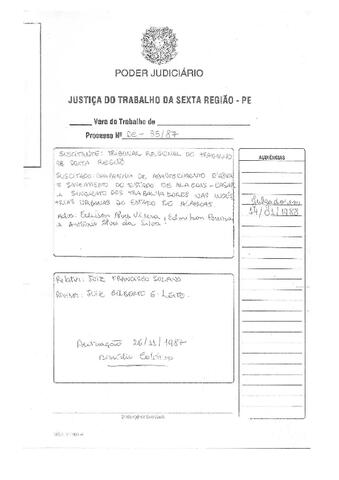 PODER JUDICIÁRIO
JUSTIÇA DO TRABALHO DA SEXTA REGIÃO - PE
Vara do Trabalho de
Processo Nº DC - 35/87
SUSCITANTE: TRIBUNAL REGIONAL DO TRABALHO
DA SEXTA REGIÃO
SUSCITADO: COMPANHIA DE ABASTECIMENTO D'ÁGUA
E SANEAMENTO DO ESTADO DE ALAGOAS - CASAL
e SINDICATO DOS TRABALHADORES NAS INDÚS
TRIAS URBANAS DO ESTADO DE ALAGOAS
Adv.: Edilson Alves Vieira,
e Antônio Alves da Silva.
AUDIÊNCIAS
Julgado em
14/01/1988
Relator: JUIZ FRANCISCO SOLANO
Revisor: JUIZ GILBERTO G. LEITE.
Autuação 26/11/1987